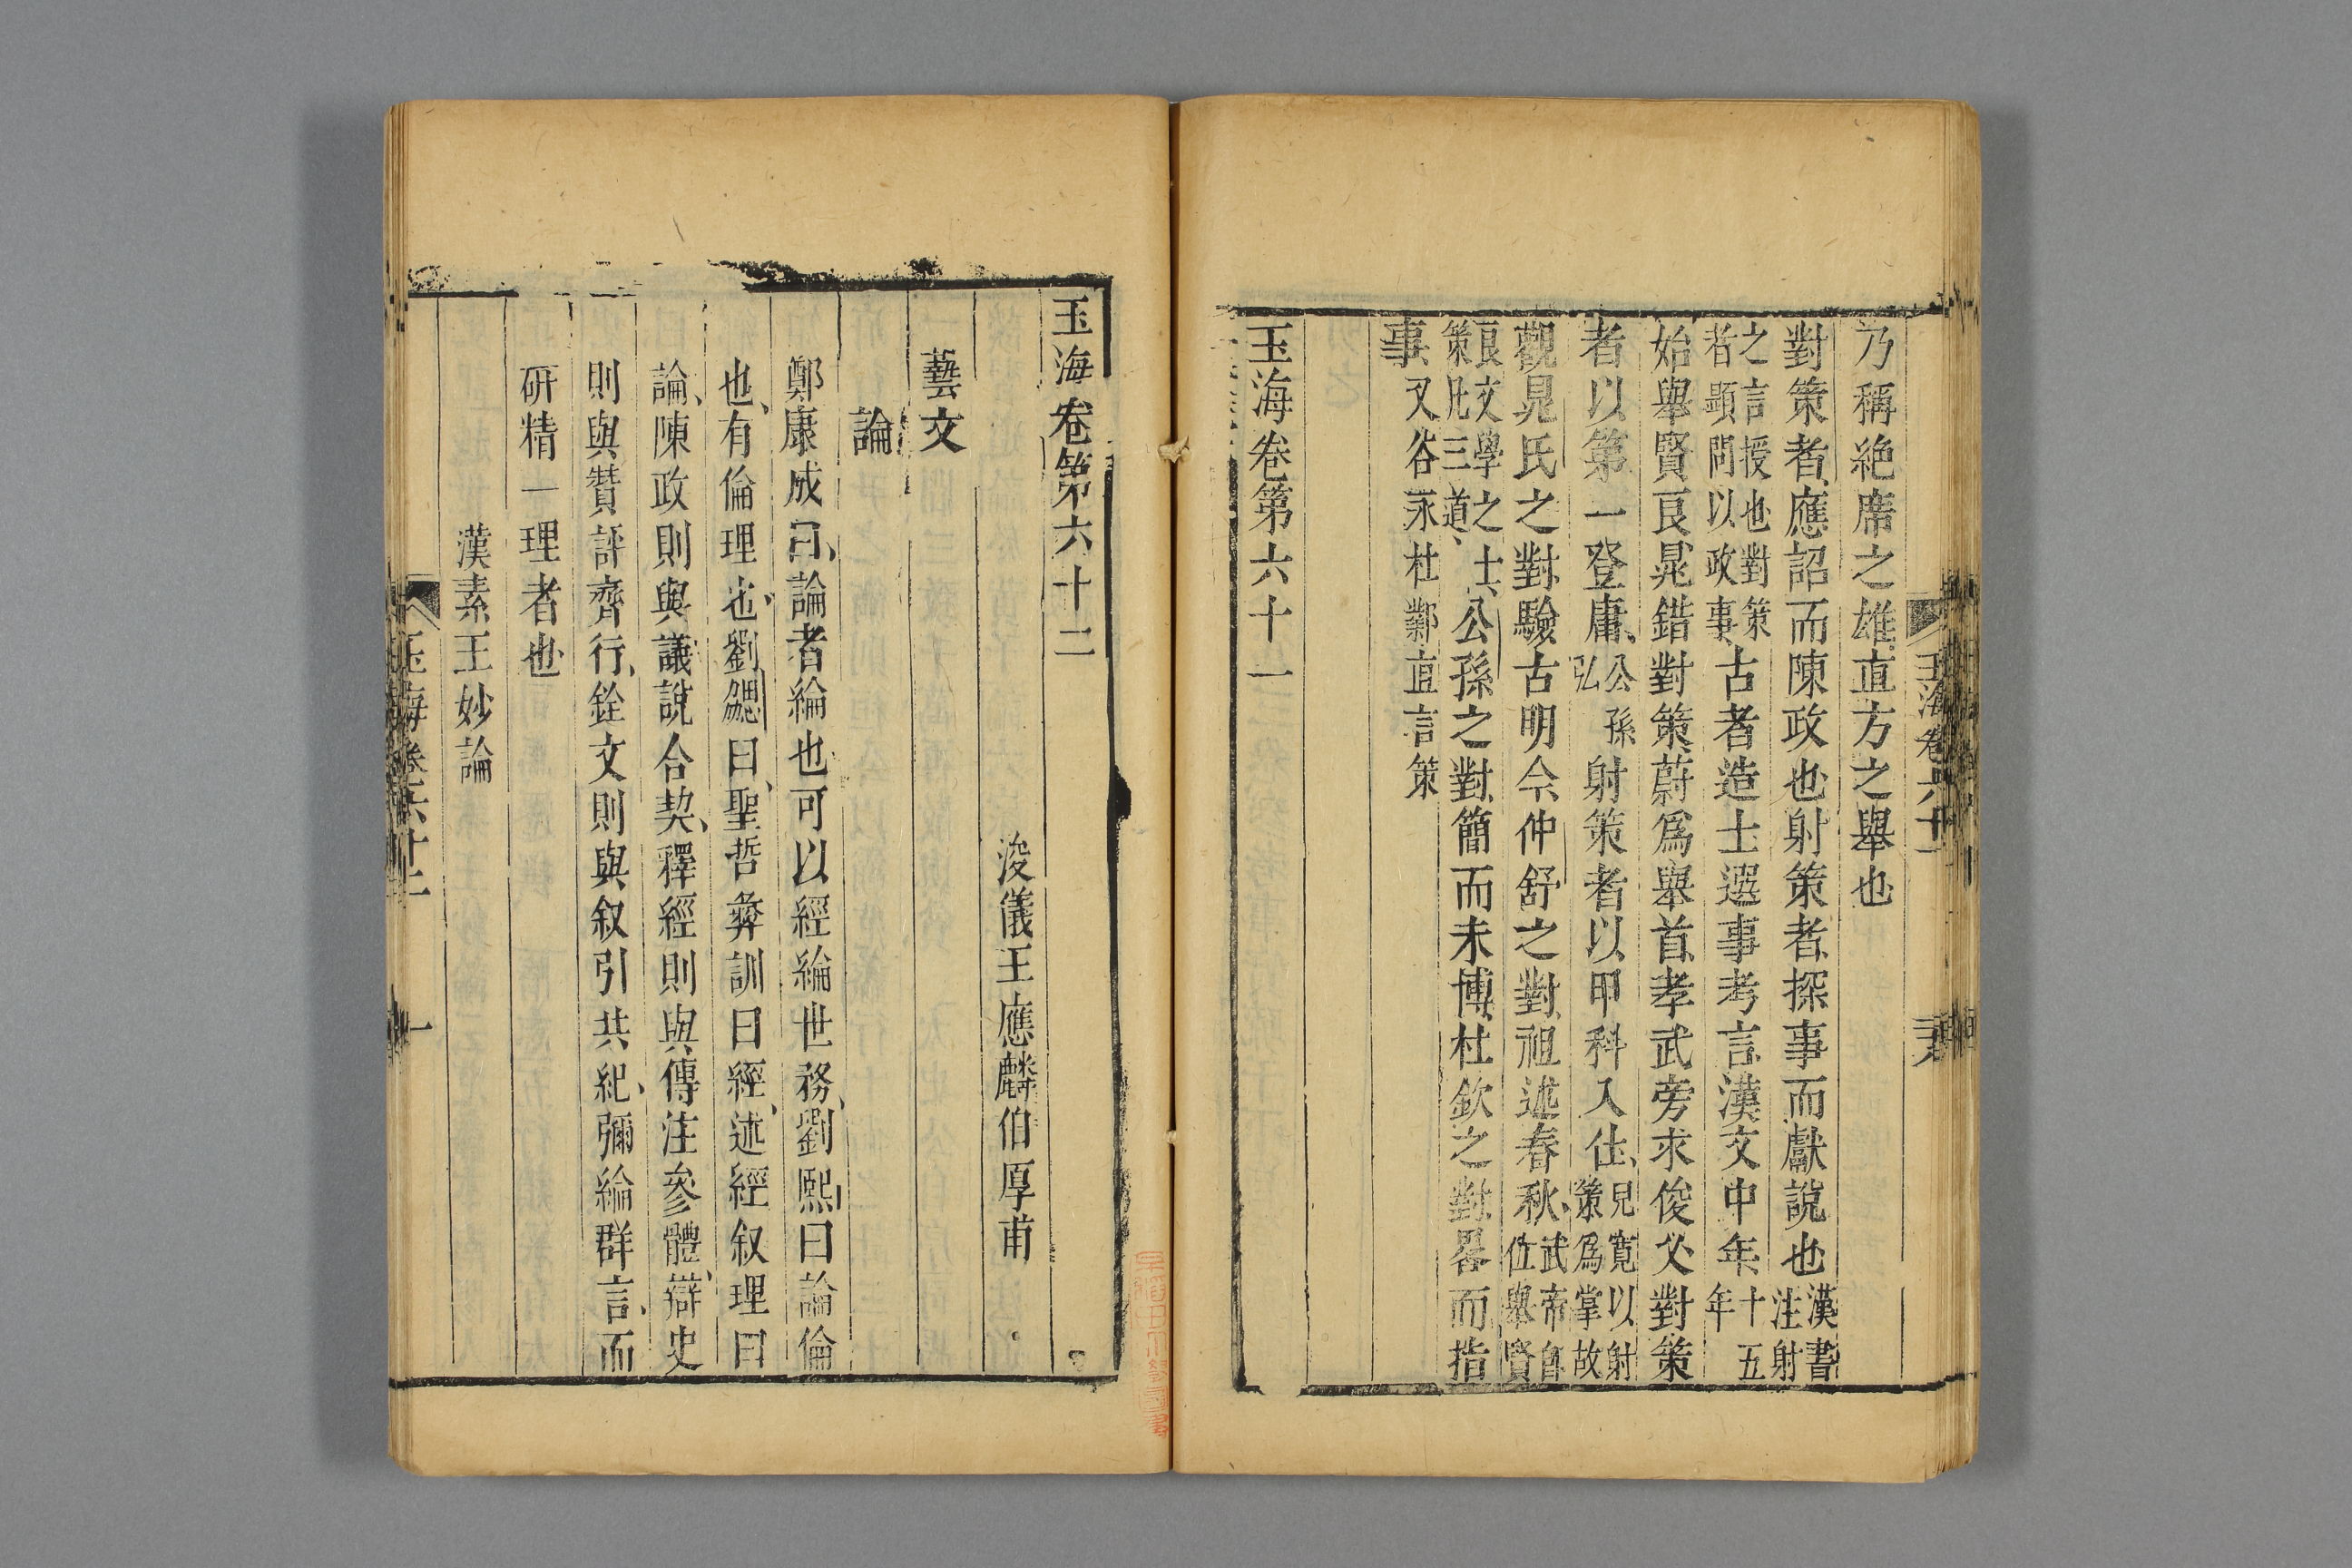 乃稱絶席之雄直方之舉也
對策者應詔而陳政也射策者探事而獻說也漢書注射
之言授也對策者顯問以政事古者造士選事考言漢文中年十五年
始舉賢良晁錯對策蔚爲舉首孝武旁求俊乂對策
者以第一登庸公孫弘射策者以甲科入仕兒寬以射策爲掌故
觀晁氏之對驗古明今仲舒之對祖述春秋武帝自位舉賢
良文學之士策凡三道公孫之對簡而未博杜欽之對畧而指
事又谷永杜鄴直言策
玉海卷第六十一
玉海卷第六十二
浚儀王應麟伯厚甫
藝文
論
鄭康成曰論者綸也可以經綸世務劉熙曰論倫
也有倫理也劉勰曰聖哲彜訓曰經述經叙理曰
論陳政則與議說合契釋經則與傳注參體辯史
則與贊評齊行銓文則與叙引共紀彌綸群言而
研精一理者也
漢素王妙論
玉海卷六十二
一